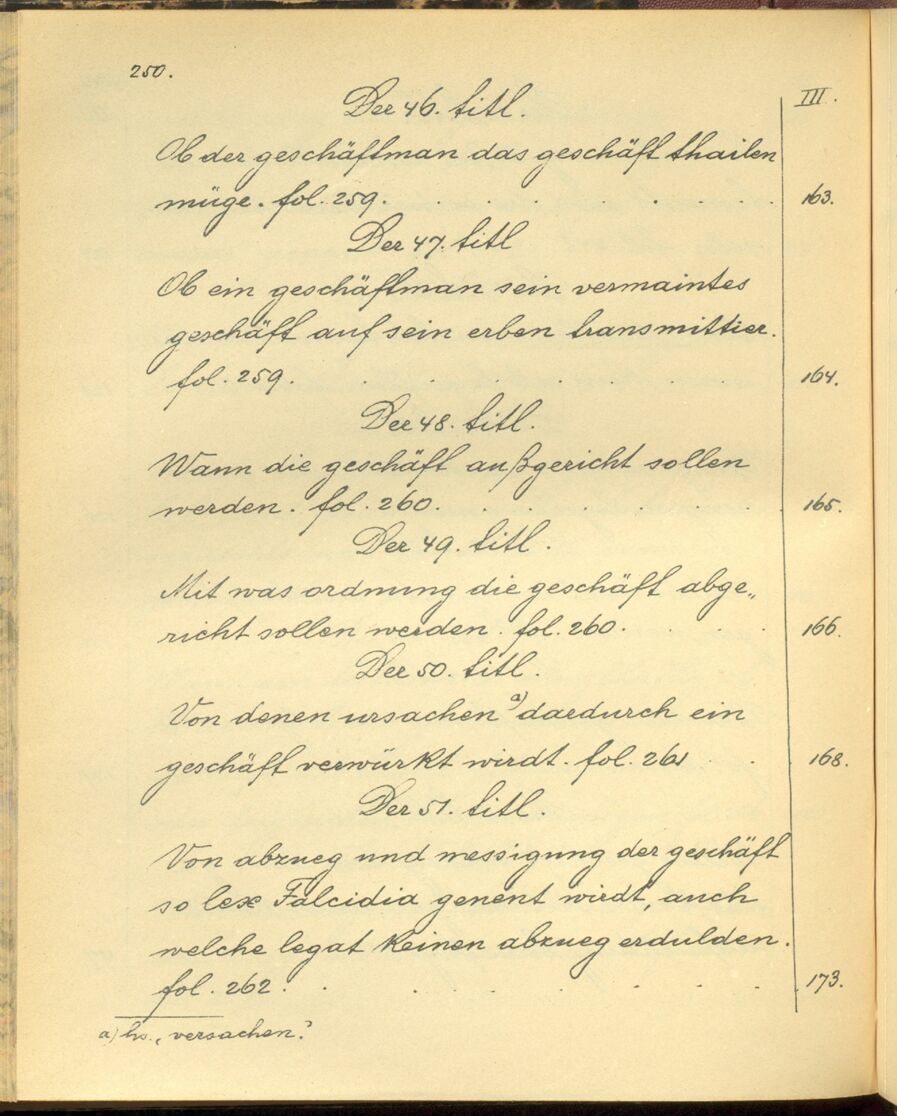 250.
III.
Der 46. titl.
Ob der geschäftman das geschäft thailen
müge. fol. 259. . . . . . . 163.
Der 47. titl
Ob ein geschäftman sein vermaintes
geschäft auf sein erben transmittier.
fol. 259. . . . . . . 164.
Der 48. titl.
Wann die geschäft außgericht sollen
werden. fol. 260. . . . . . . 165.
Der 49. titl.
Mit was ordnung die geschäft abge„
richt sollen werden. fol. 260. . . . 166.
Der 50. titl.
Von denen ursachen a) dardurch ein
geschäft verwürkt wirdt. fol. 261 . . 168.
Der 51. titl.
Von abzueg und messigung der geschäft
so lex Falcidia genent wirdt, auch
welche legat keinen abzueg erdulden.
fol. 262. . . . . . . . 173.
a) hs. „versachen.“